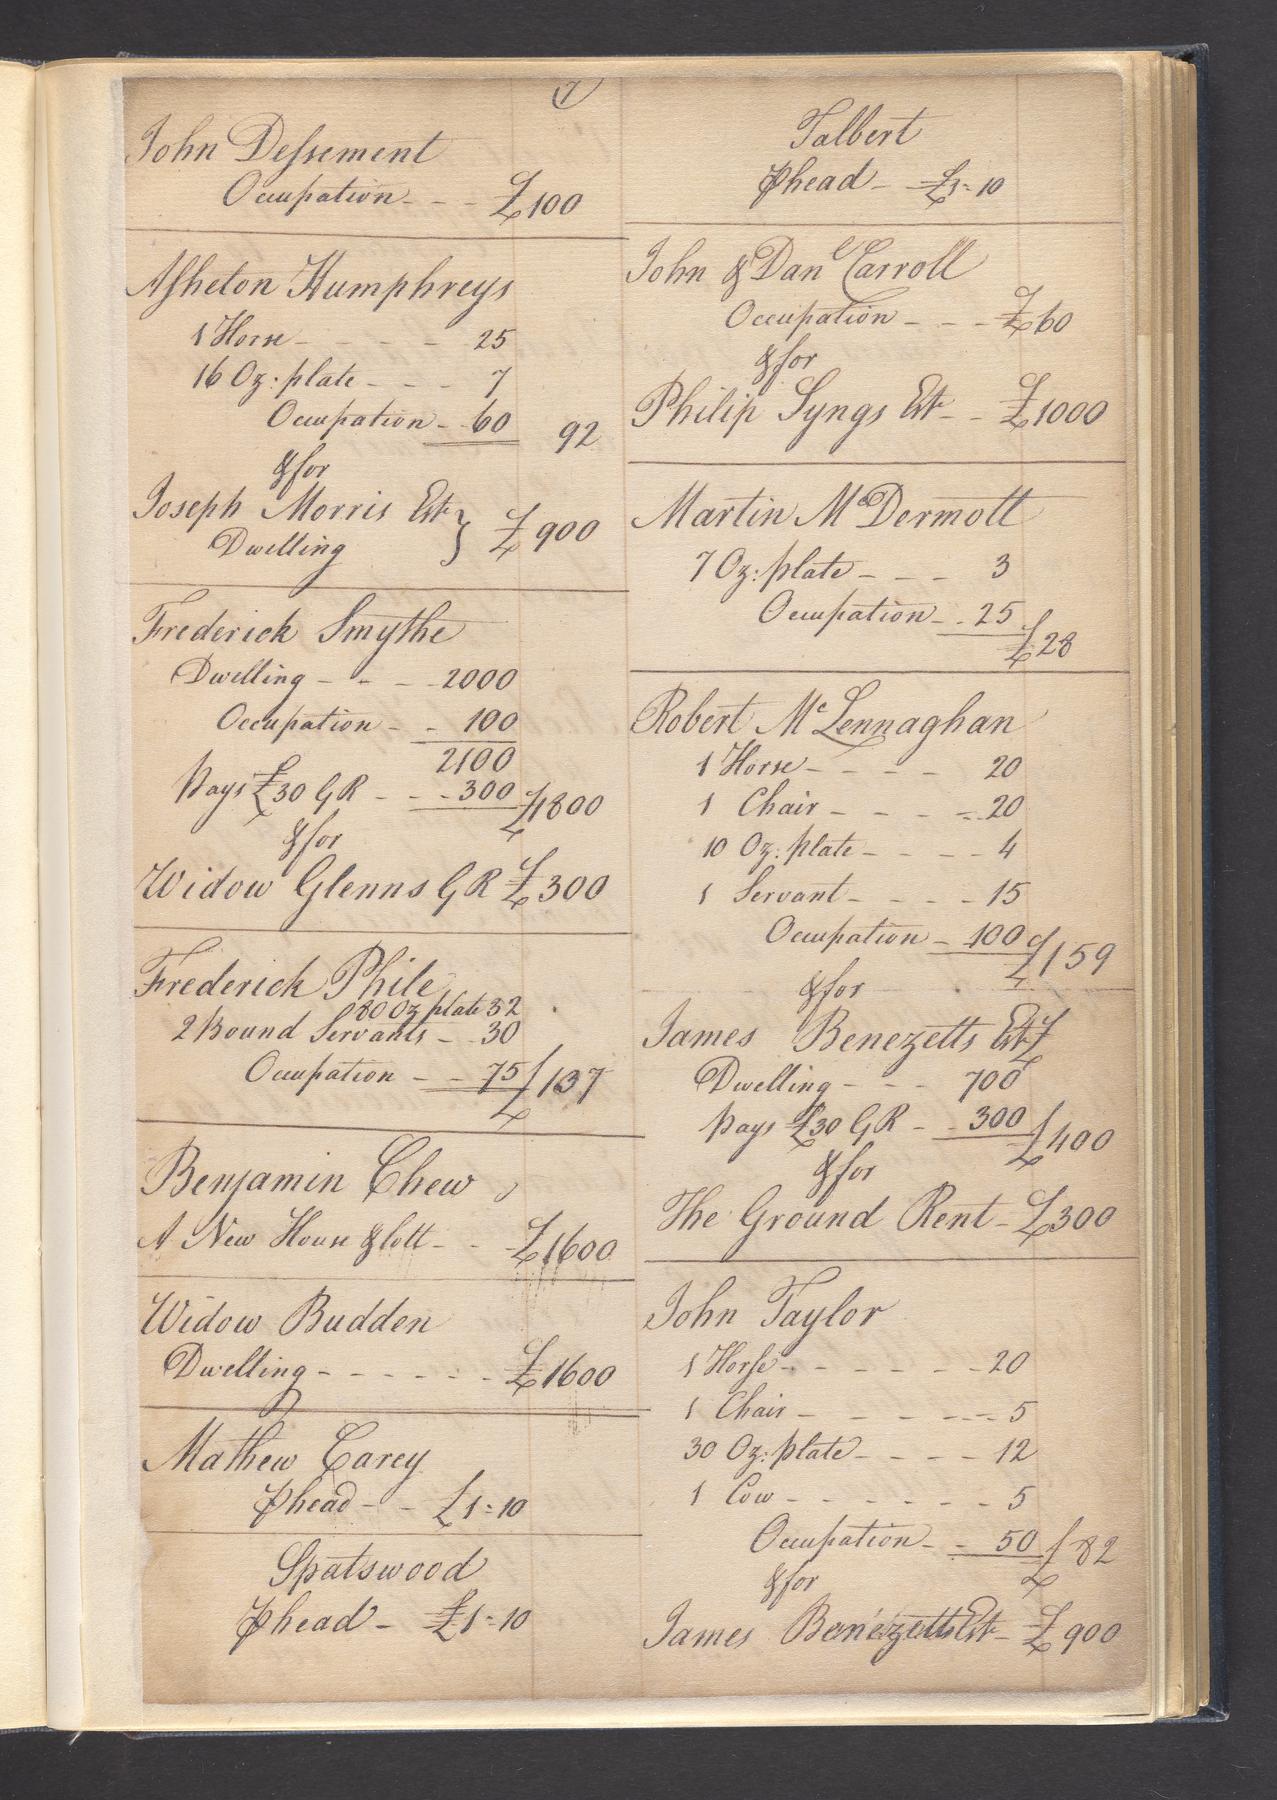 7
John Dessement
Occupation - - - £100
Assheton Humphreys
1 Horse - - - 25
16 Oz: plate - - - 7
Occupation - 60 92
& for
Joseph Morris Est }
Dwelling £900
Frederick Smythe
Dwelling - - - 2000
Occupation - - 100
2100
Pays £30 G R - - - 300 £1800
& for
Widow Glenns G R £300
Frederick Phile
80 Oz plate 32
2 Bound Servants - 30
Occupation - - 75 £137
Benjamin Chew
A New House & lott - - - £1600
Widow Budden
Dwelling - - - - - - £1600
Mathew Carey
⅌ head - - £1=10
Spatswood
⅌ head - £1=10
Talbert
⅌ head - £1=10
John & Danl Carroll
Occupation - - - £60
& for
Philip Syngs Est - - £1000
Martin McDermott
7 Oz: plate - - - 3
Occupation - - 25 £28
Robert McLennaghan
1 Horse - - - - 20
1 Chair - - - - 20
10 Oz: plate - - - - 4
1 Servant - - - - 15
Occupation - 100 £159
& for
James Benezetts Est £
Dwelling - - - 700
Pays £30 G R - - 300 £400
& for
The Ground Rent - £300
John Taylor
1 Horse - - - - - - 20
1 Chair - - - - - - 5
30 Oz: plate - - - - 12
1 Cow - - - - - - 5
Occupation - - 50 £82
& for
James Benezetts Est - £900